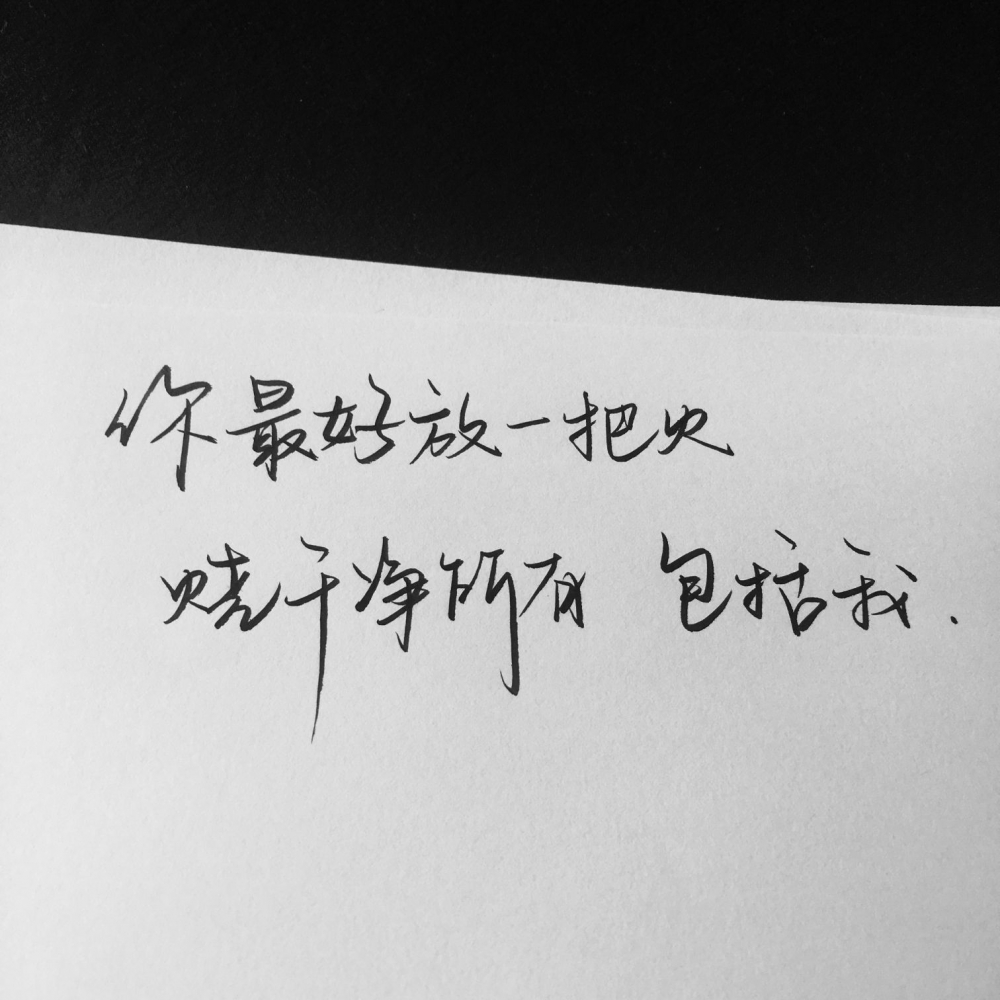 你最好放一把火
烧干净所有 包括我.